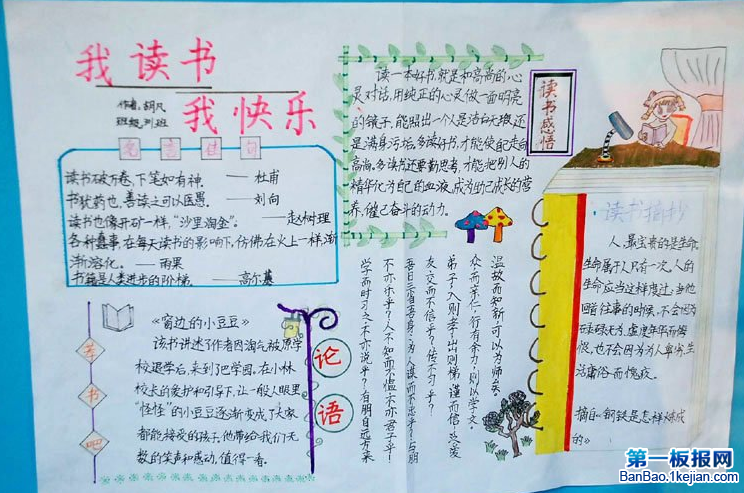 我读书
我快乐
作者:胡凡
班级:洌班
名言佳句
读书破万卷,下笔如有神。——杜甫
书犹药也,善读之可以医愚。——刘向
读书也像开矿一样,"沙里淘金"。——赵树理
各种蠢事,在每天读书的影响下,仿佛在火上一样渐
渐溶化。——雨果
书籍是人类进步的阶梯。——高尔基
读一本好书,就是和高尚的心
灵对话,用纯正的心灵做一面明亮
的镜子,能照出一个人是洁白无瑕还
是满身污垢。多读好书,才能使自己走向
高尚。多读书还要勤思考,才能把别人的
精华化为自己的血液,成为助己成长的营
养,催己奋斗的动力。
读书感悟
读书摘抄
人最宝贵的是生命
生命属于人只有一次,人的
生命应当这样度过:当他
回首往事的时候,不会因为
碌碌无为,虚度年华而悔
恨,也不会因为为人卑劣,生
活庸俗而愧疚。
摘自《钢铁是怎样炼成
的》
荐书吧
《窗边的小豆豆》
该书讲述了作者因淘气被原学
校退学后,来到巴学园,在小林
校长的爱护和引导下,让一般人眼里
"怪怪"的小豆豆逐渐变成了大家
都能接受的孩子,他带给我们无
数的笑声和感动,值得一看。
论语
学而时习之不亦说乎?有朋自远方来
不亦乐乎?人不知而不愠不亦君子乎!
吾日三省吾身:为人谋而不忠乎?与朋
友交而不信乎?传不习乎?
弟子入则孝,出则悌,谨而信,泛爱
众,而亲仁,行有余力,则以学文。
温故而知新可以为师矣。
第一板报网
BanBao.1kejian.com